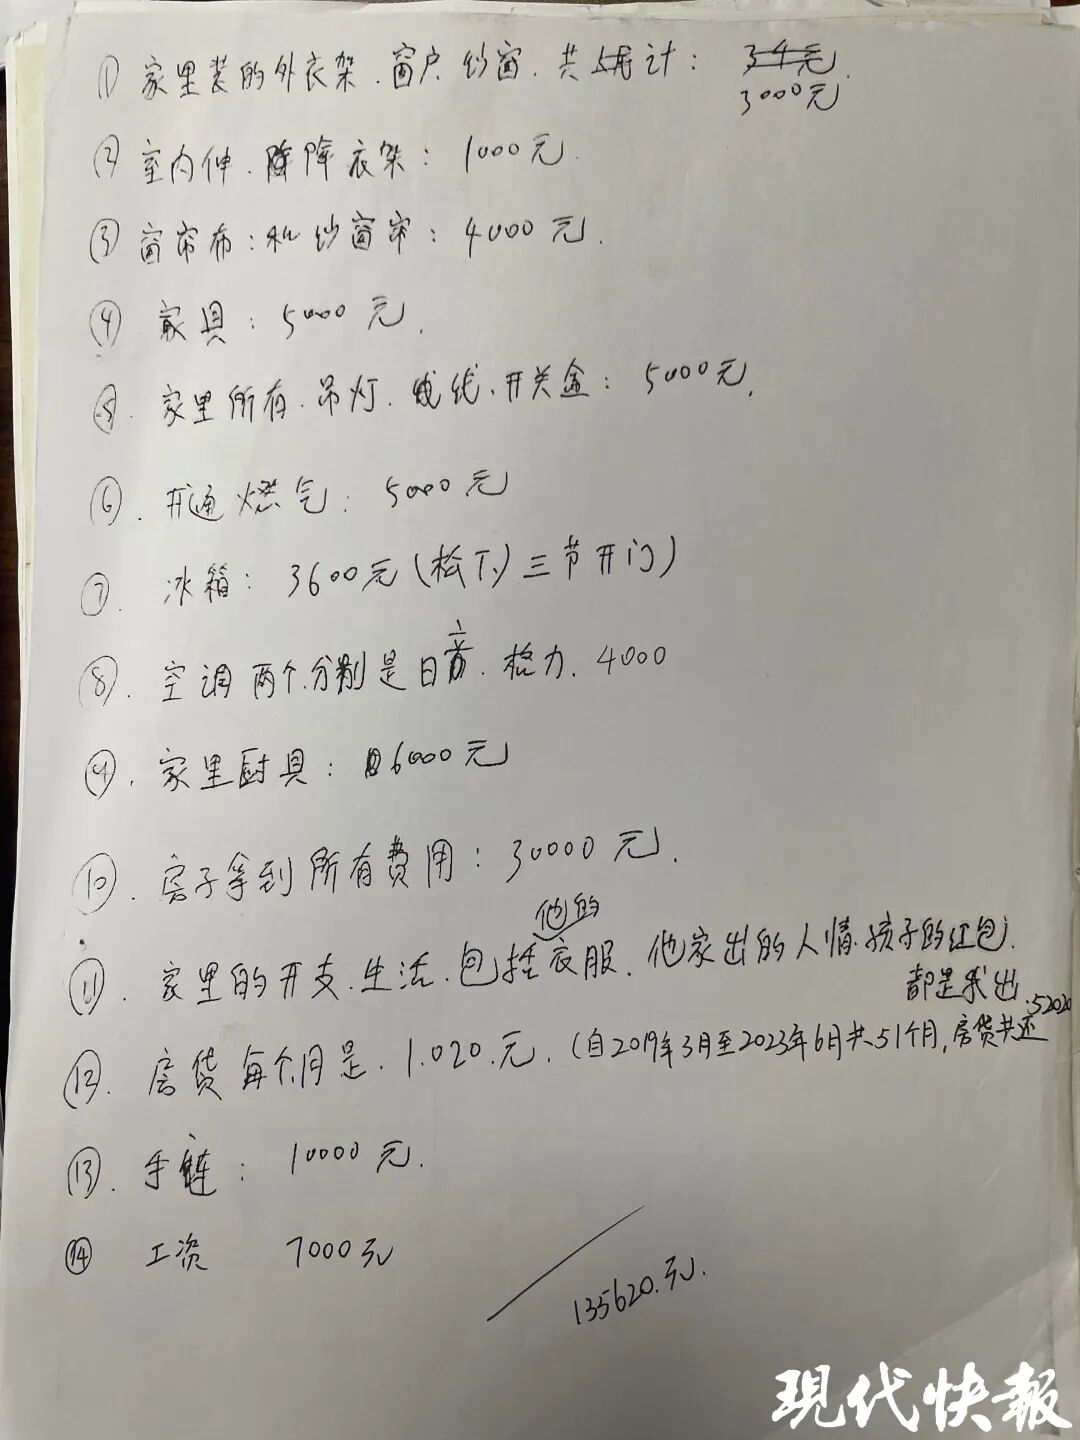 ① 家里装的外衣架.窗户.纱窗.共计: 3000元.
② 室内伸.降衣架: 1000元.
③ 窗帘布:和纱窗帘: 4000元.
④ 家具: 5000元.
⑤. 家里所有.吊灯.线.开关盒: 5000元.
⑥. 开通燃气: 5000元
⑦. 冰箱: 3600元(松下)三节开门)
⑧. 空调两个.分别是日音.格力. 4000
⑨. 家里厨具: 6000元
⑩. 房子拿到所有费用: 30000元.
他的
⑪. 家里的开支.生活.包括衣服.他家出的人情.孩子的红包.
都是我出
52020
⑫. 房贷每个月是.1.020.元.(自2019年3月至2023年6月共51个月,房贷共还
⑬. 手链: 10000元.
⑭ 工资 7000元
135620.元.
現代快報